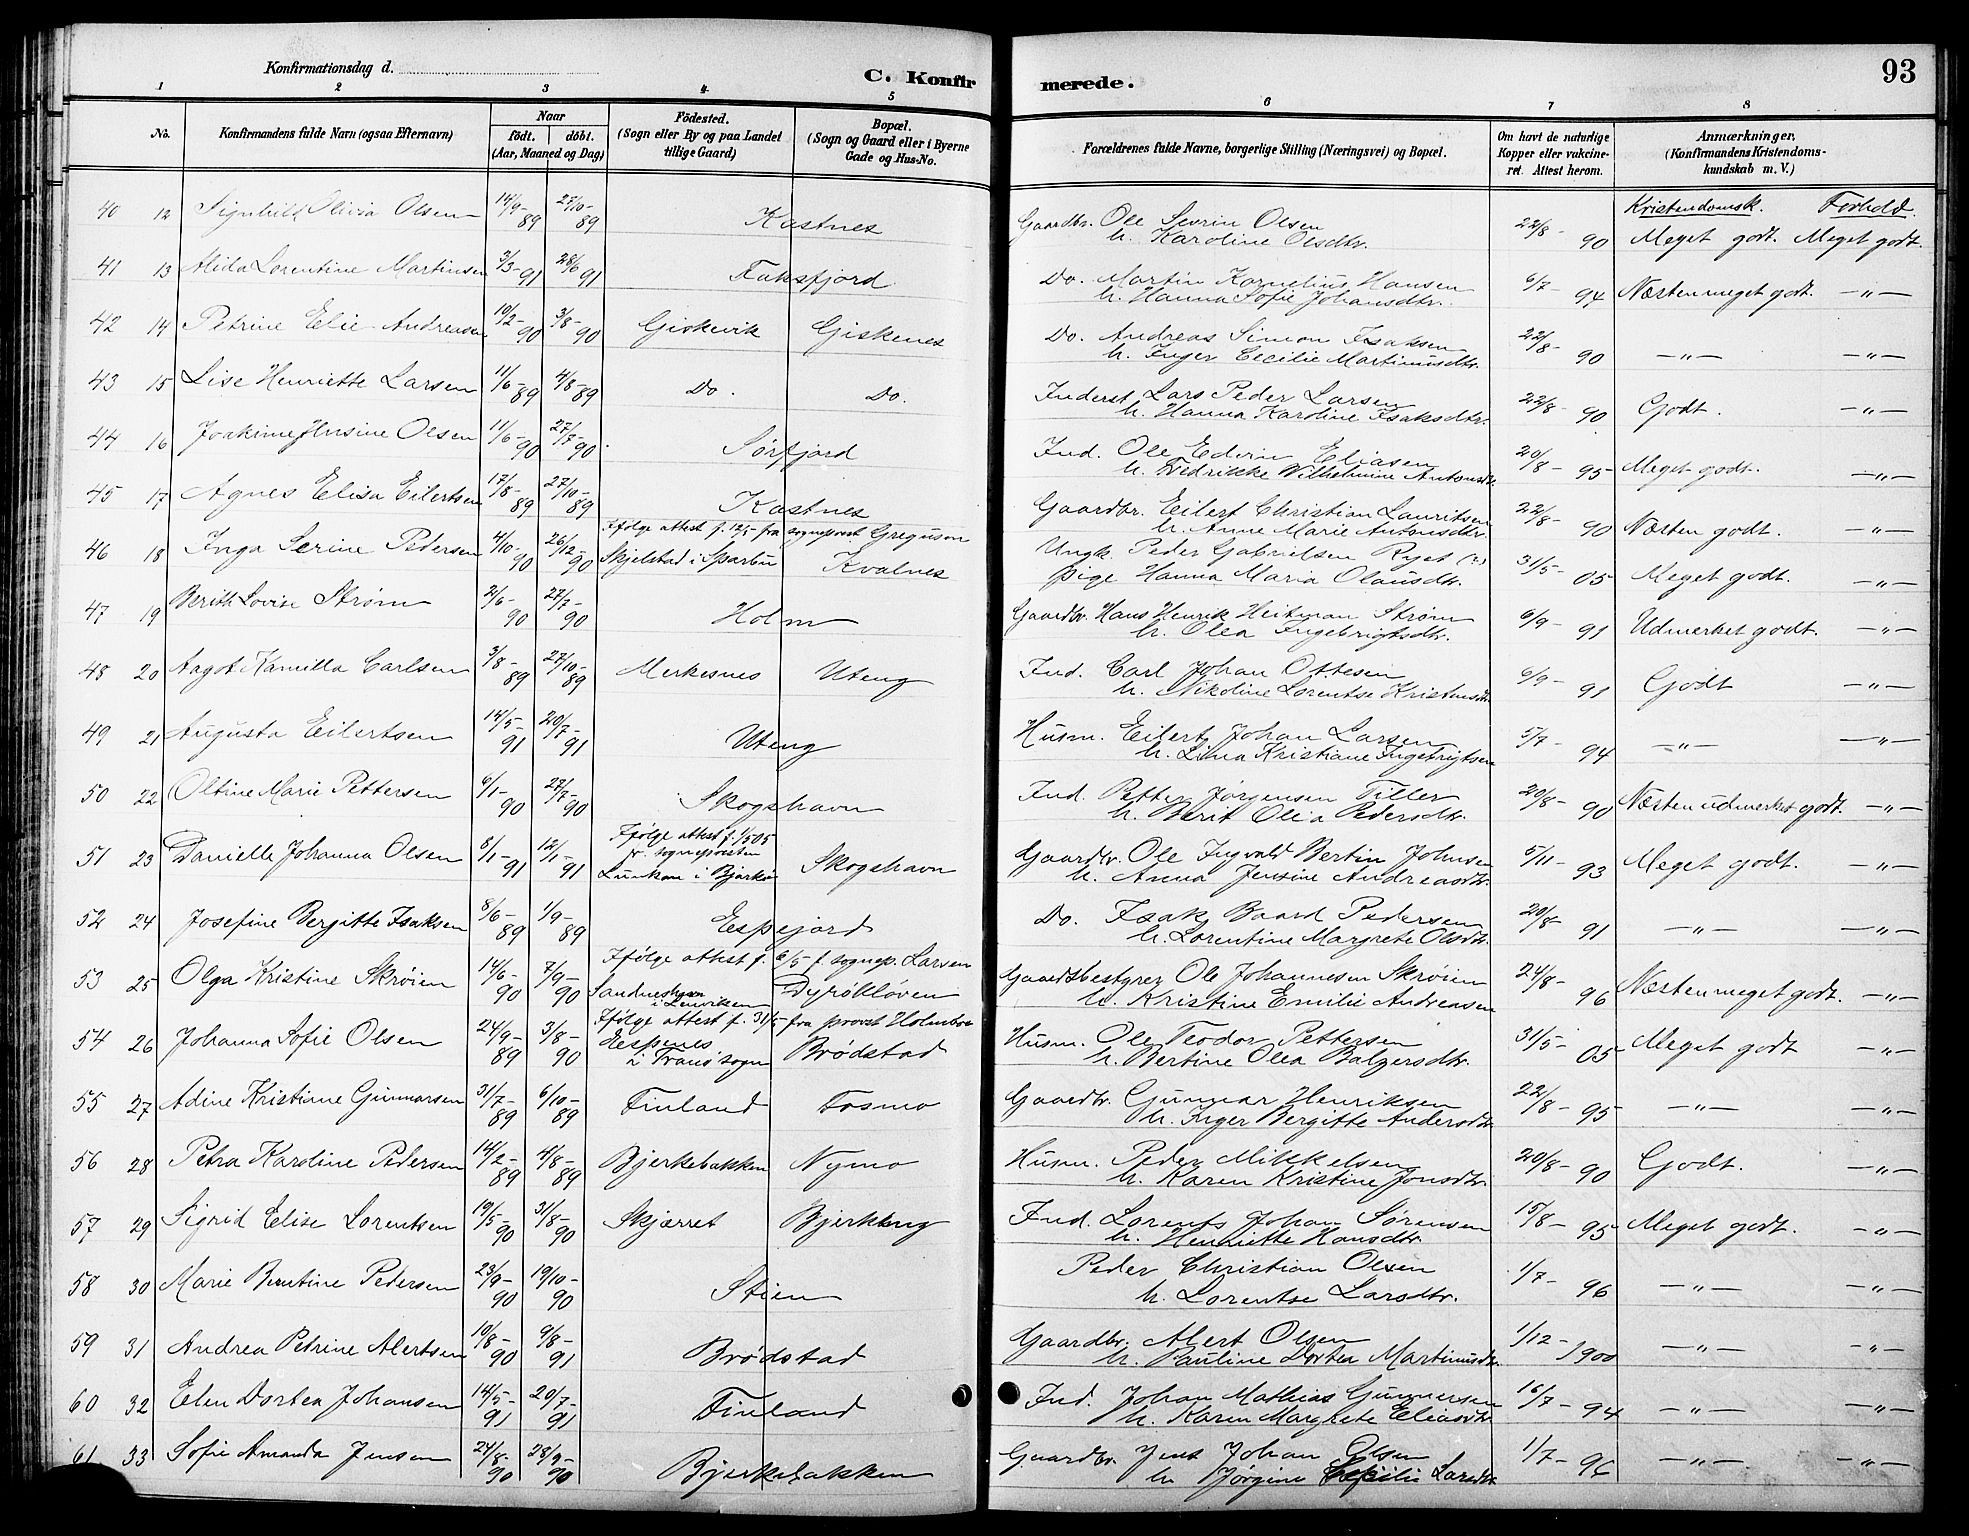 Konfirmationsdag d.
C. Konfirmerede.
93
1 2 3 4 5 6 7 8
No. Konfirmandens fulde Navn (ogsaa Efternavn) Naar födt. döbt. (Aar, Maaned og Dag) Födested. (Sogn eller By og paa Landet tillige Gaard) Bopæl. (Sogn og Gaard eller i Byerne Gade og Hus-No. Forældrenes fulde Navne, borgerlige Stilling (Næringsvei) og Bopæl. Om havt de naturlige Kopper eller vakcineret. Attest herom. Anmærkninger. (Konfirmandens Kristendomskundskab m. V.)
Kristendomsk. Forhold.
40 12 Signhild Olivia Olsen 14/9-89 27/10-89 Kastnes Gaardbr. Ole Sevrin Olsen 22/8-90 Meget godt. Meget godt.
h. Karoline Olsdtr.
41 13 Alida Lorentine Martinsen 3/3-91 28/6 91 Faksfjord Do. Martin Kornelius Hansen 6/7-94 Næsten meget godt. -"-
h. Hanna Sofie Johansdtr.
42 14 Petrine Elie Andreasen 10/2-90 3/8-90 Giskevik Giskenes Do. Andreas Simon Isaksen 22/8-90 -"- -"-
h. Inger Cecilie Martinusdtr.
43 15 Lise Henriette Larsen 11/6-89 4/8-89 Do. Do. Inderst Lars Peder Larsen 22/8-90 Godt. -"-
h. Hanna Karoline Isaksdtr.
44 16 Joakime Jensine Olsen 11/6-90 27/7-90 Sørfjord Ind. Ole Edvin Eliasen 20/8-95 Meget godt. -"-
h. Fredrikke Wilhelmine Antonsdt.
45 17 Agnes Elisa Eilertsen 17/8-89 27/10-89 Kastnes Gaardbr. Eilert Christian Lauritsen 22/8-90 Næsten godt. -"-
h. Anne Marie Antonsdtr.
Ifølge attest f. 12/5 fra sogneprest Greguson
46 18 Inga Serine Pedersen 4/10-90 26/12-90 Skjelstad i Sparbu Kvalnes Ungk. Peder Gabrielsen Ryet (?) 31/5-05 Meget godt. -"-
pige Hanna Maria Olausdtr.
47 19 Berith Lovise Strøm 2/6-90 27/7-90 Holm Gaardbr. Hans Henrik Heitman Strøm 6/9-91 Udmerket godt. -"-
h. Olea Ingebrigtsdtr.
48 20 Aagot Kamilla Carlsen 3/8-89 27/10-89 Merkesnes Uteng Ind. Carl Johan Ottesen 6/9-91 Godt -"-
h. Nikoline Lorentse Kristensdt.
49 21 Augusta Eilertsen 14/5-91 20/7-91 Uteng Husm. Eilert Johan Larsen 5/7-94 -"- -"-
h. Lina Kristiane Ingebrigtsen
50 22 Oltine Marie Pettersen 6/1-90 27/7-90 Skogshavn Ind. Petter Jørgensen Tiller 20/8-90 Næsten udmerket godt. -"-
h. Berit Olia Pedersdtr.
Ifølge attest f. 1/5 05
fr. sognepresten
51 23 Danielle Johanna Olsen 8/1-91 12/1-91 Lunkan i Bjarkø Skogshavn Gaardbr. Ole Ingvald Bertin Johnsen 5/11-93 Meget godt. -"-
h. Anna Jensine Andreasdtr.
52 24 Josefine Bergitte Isaksen 8/6-89 1/9-89 Espejord Do. Isak Baard Pedersen 20/8-91 -"- -"-
h. Lorentine Margrete Olsdt.
Ifølge attest f. 6/5 f. sognep. Larsen
53 25 Olga Kristine Skrøien 14/6-90 7/9-90 Sandneshavn i Lenviken Dyrökløven Gaardsbestyrer Ole Johannesen Skrøien 24/8-96 Næsten meget godt. -"-
h. Kristine Emilie Andreasen
Ifølge attest f. 31/5 fra provst Holmboe
54 26 Johanna Sofie Olsen 24/9-89 3/8-90 Espenes i Tranø sogn Brødstad Husm. Ole Teodor Pettersen 31/5-05 Meget godt -"-
h. Bertine Olea Balzersdtr.
55 27 Adine Kristinne Gunnarsen 31/7-89 6/10-89 Finland Fosmo Gaardbr. Gunnar Henriksen 22/8-95 -"- -"-
h. Inger Bergitte Andersdt.
56 28 Petra Karoline Pedersen 14/2-89 4/8-89 Bjerkebakken Nymo Husm. Peder Mikkelsen 20/8-90 Godt. -"-
h. Karen Kristine Jonsdtr.
57 29 Sigrid Elise Lorentsen 19/5-90 31/8-90 Skjærret Bjerkeng Ind. Lorents Johan Sørensen 15/8-95 Meget godt. -"-
h. Henriette Hansdtr.
58 30 Marie Berntine Pedersen 23/9-90 19/10-90 Stien Peder Christian Olsen 1/7-96 -"- -"-
h. Lorentse Larsdtr.
59 31 Andrea Petrine Alertsen 10/8-90 9/8-91 Brødstad Gaardbr. Alert Olsen 1/12-1900 -"- -"-
h. Pauline Dortea Martinusdt.
60 32 Elen Dortea Johansen 14/5-91 20/7-91 Finland Ind. Johan Mathias Gunnersen 16/7-94 -"- -"-
h. Karen Margrete Eliasdt.
61 33 Sofie Amanda Jensen 24/8-90 28/9-90 Bjerkebakken Gaardbr. Jens Johan Olsen 1/7-96 -"- -"-
h. Jørgine Cecilie Larsdt.